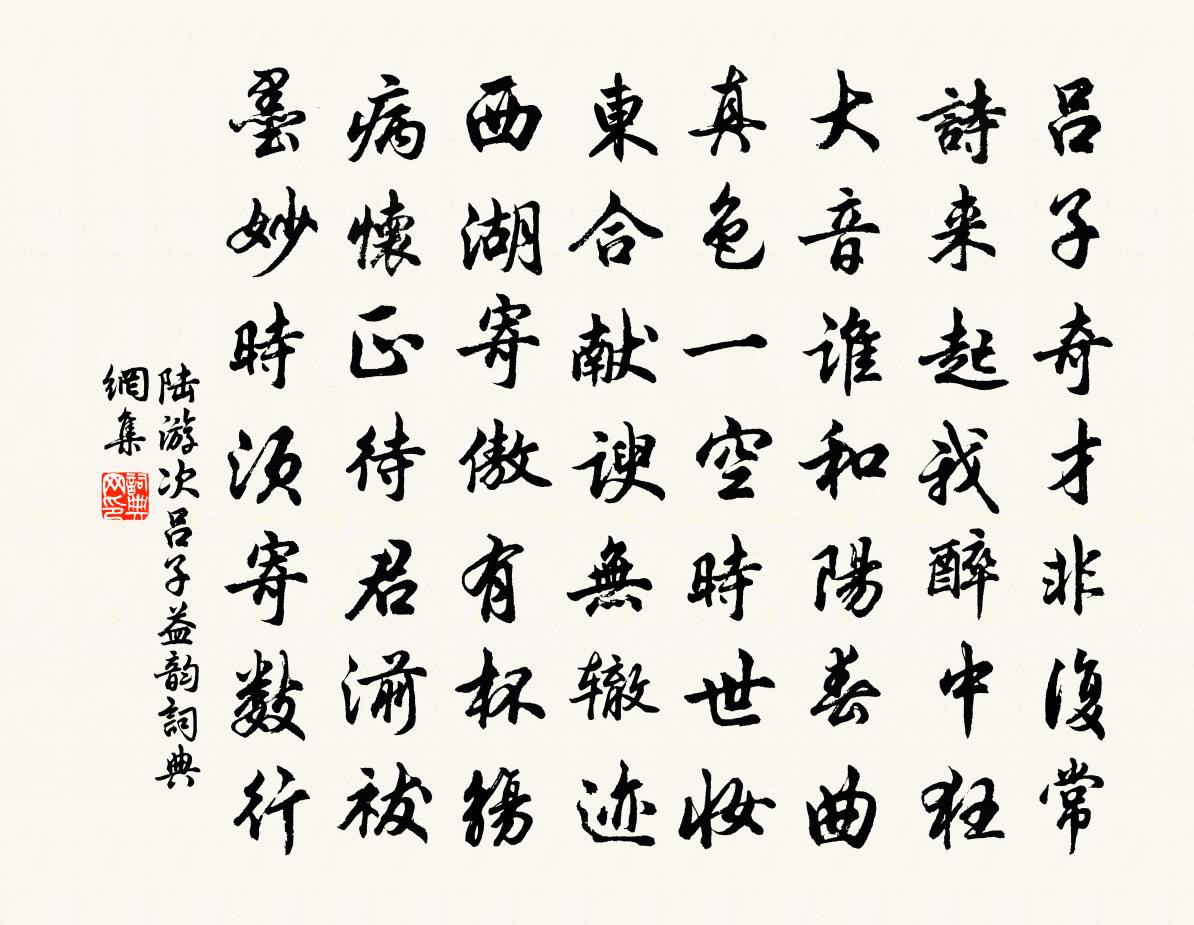 吕子奇才非復常
詩来起我醉中狂
大音谁和陽春曲
真色一空時世妆
東合献謏無辙迹
西湖寄傲有杯觴
病懷正待君湔祓
墨妙時須寄数行
陆游次吕子益韵詞典
網集
詞典网印